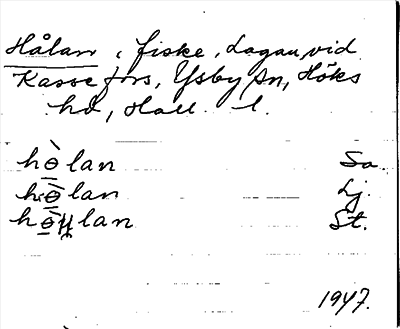 Hålan, fiske, Lagan, vid
Kassefors, Ysby sn, Höks
hd, Hall. l.
hɵ̀lan Sa
hɵ̀lan Lj.
lan St.
1947.